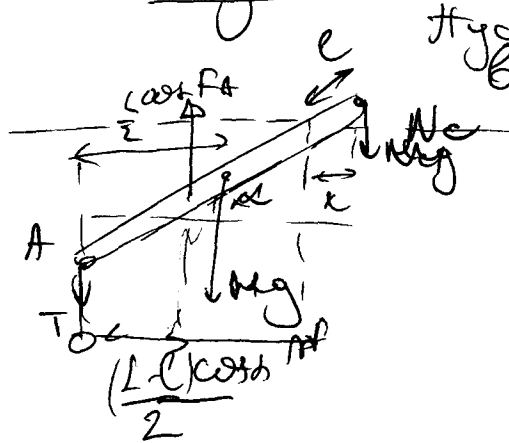 l
L/2 cosα
F_A
N_c
mg
x
α
A
mg
T
(L-l)cosα
2